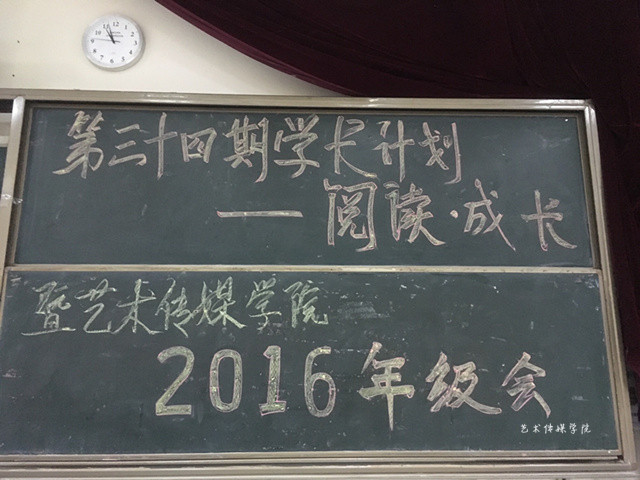 第三十四期学长计划
— 阅读·成长
暨艺术传媒学院
2016年级会
艺术传媒学院